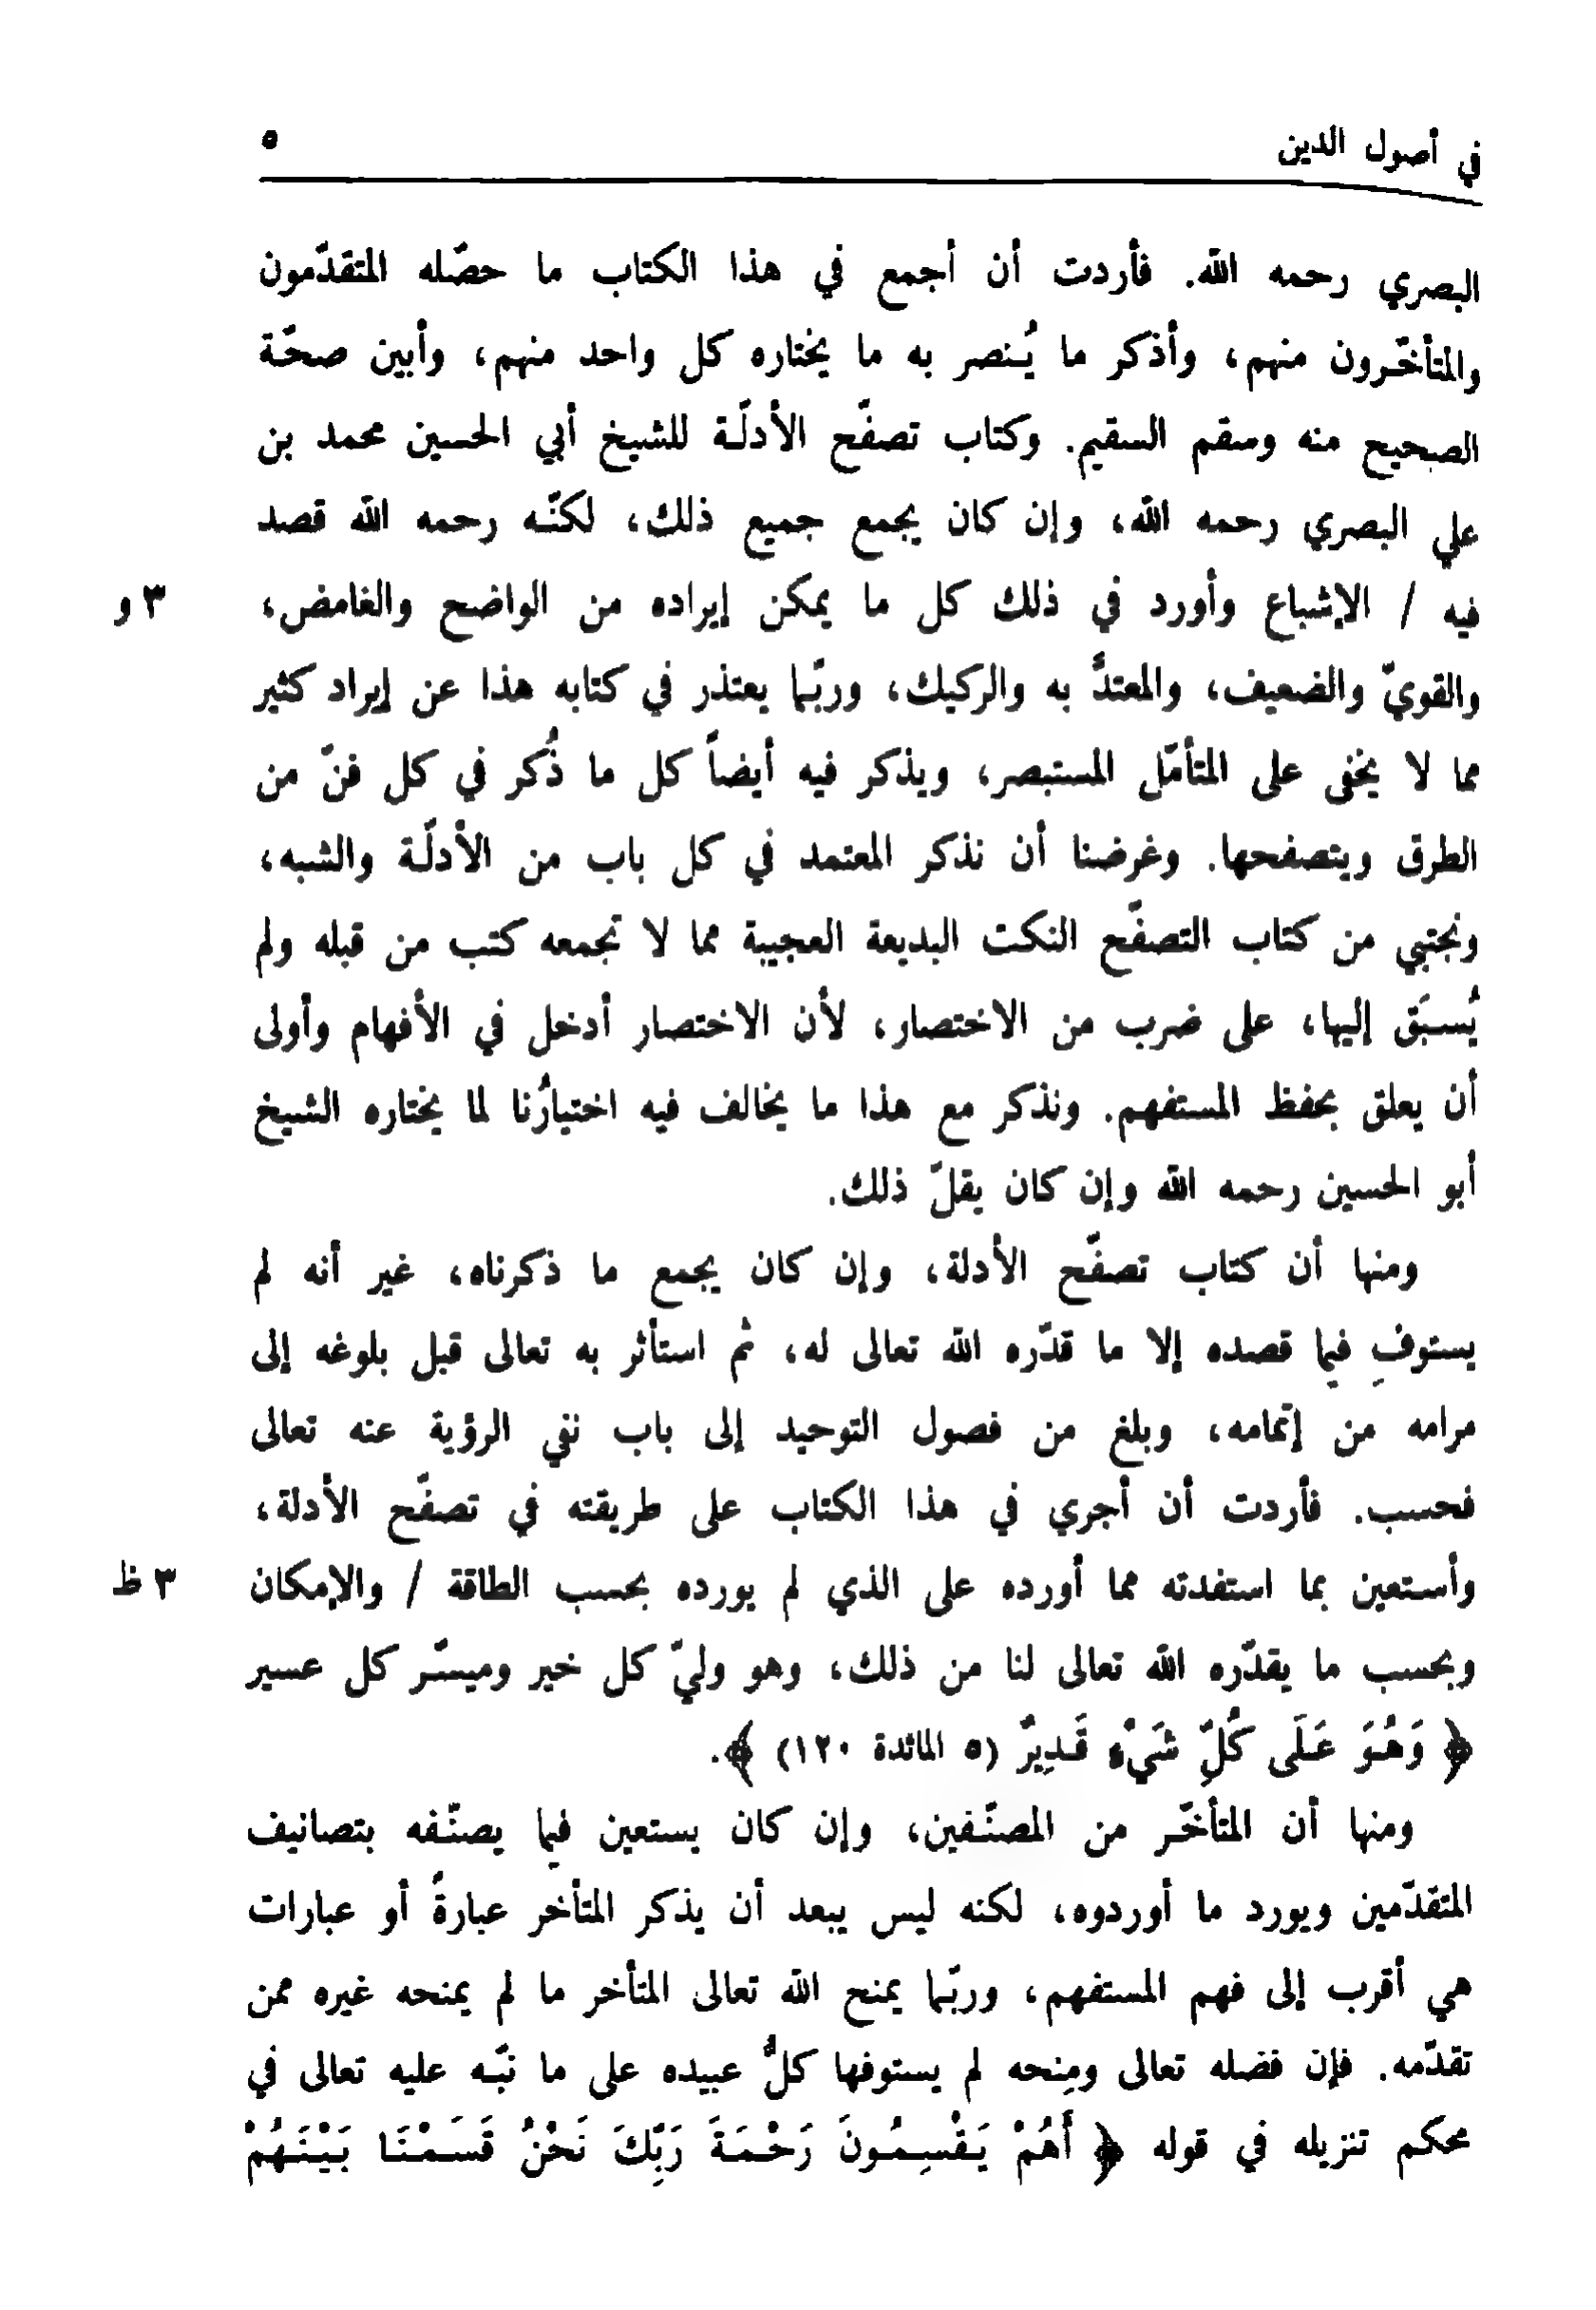 في أصول الدين ٥
البصري رحمه الله. فأردت أن أجمع في هذا الكتاب ما حصّله المتقدّمون
والمتأخّرون منهم، وأذكر ما يُنصر به ما يختاره كل واحد منهم، وأبين صحّة
الصحيح منه وسقم السقيم. وكتاب تصفّح الأدلّة للشيخ أبي الحسين محمد بن
علي البصري رحمه الله، وإن كان يجمع جميع ذلك، لكنّه رحمه الله قصد
فيه / الإشباع وأورد في ذلك كل ما يمكن إيراده من الواضح والغامض، ٣ و
والقويّ والضعيف، والمعتدّ به والركيك، وربّما يعتذر في كتابه هذا عن إيراد كثير
مما لا يخفى على المتأمّل المستبصر، ويذكر فيه أيضاً كل ما ذُكر في كل فنّ من
الطرق ويتصفحها. وغرضنا أن نذكر المعتمد في كل باب من الأدلّة والشبه،
ونجتبي من كتاب التصفّح النكت البديعة العجيبة مما لا تجمعه كتب من قبله ولم
يُسبَق إليها، على ضرب من الاختصار، لأن الاختصار أدخل في الأفهام وأولى
أن يعلق بحفظ المستفهم. ونذكر مع هذا ما يخالف فيه اختيارُنا لما يختاره الشيخ
أبو الحسين رحمه الله وإن كان يقلّ ذلك.
ومنها أن كتاب تصفّح الأدلة، وإن كان يجمع ما ذكرناه، غير أنه لم
يستوفِ فيما قصده إلا ما قدّره الله تعالى له، ثم استأثر به تعالى قبل بلوغه إلى
مرامه من إتمامه، وبلغ من فصول التوحيد إلى باب نفي الرؤية عنه تعالى
فحسب. فأردت أن أجري في هذا الكتاب على طريقته في تصفّح الأدلة،
وأستعين بما استفدته مما أورده على الذي لم يورده بحسب الطاقة / والإمكان ٣ ظ
وبحسب ما يقدّره الله تعالى لنا من ذلك، وهو وليّ كل خير وميسّر كل عسير
﴿ وَهُوَ عَلَى كُلِّ شَيْءٍ قَدِيرٌ (٥ المائدة ١٢٠) ﴾.
ومنها أن المتأخّر من المصنّفين، وإن كان يستعين فيما يصنّفه بتصانيف
المتقدّمين ويورد ما أوردوه، لكنه ليس يبعد أن يذكر المتأخر عبارةً أو عبارات
هي أقرب إلى فهم المستفهم، وربّما يمنح الله تعالى المتأخر ما لم يمنحه غيره ممن
تقدّمه. فإن فضله تعالى ومِنحه لم يستوفها كلُّ عبيده على ما نبّه عليه تعالى في
محكم تنزيله في قوله ﴿ أَهُمْ يَقْسِمُونَ رَحْمَةَ رَبِّكَ نَحْنُ قَسَمْنَا بَيْنَهُمْ